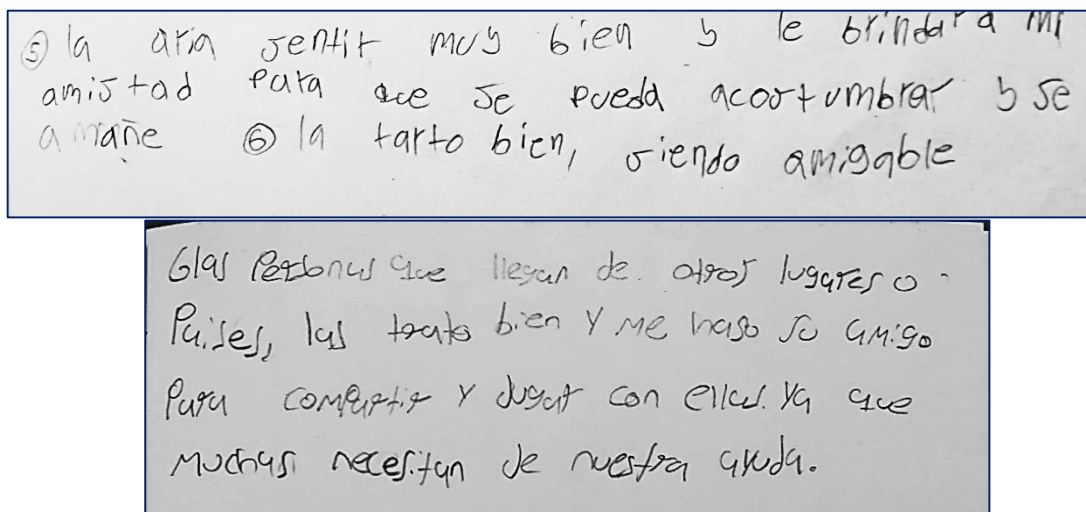 ⑤ la aria sentir muy bien y le brindara mi
amistad para que se pueda acostumbrar y se
amañe ⑥ la tarto bien, siendo amigable
6las personas que llegan de otros lugares o
Paises, las trato bien Y me hago su amigo
Para compartir Y Jugar con ellas. Ya que
muchas necesitan de nuestra ayuda.